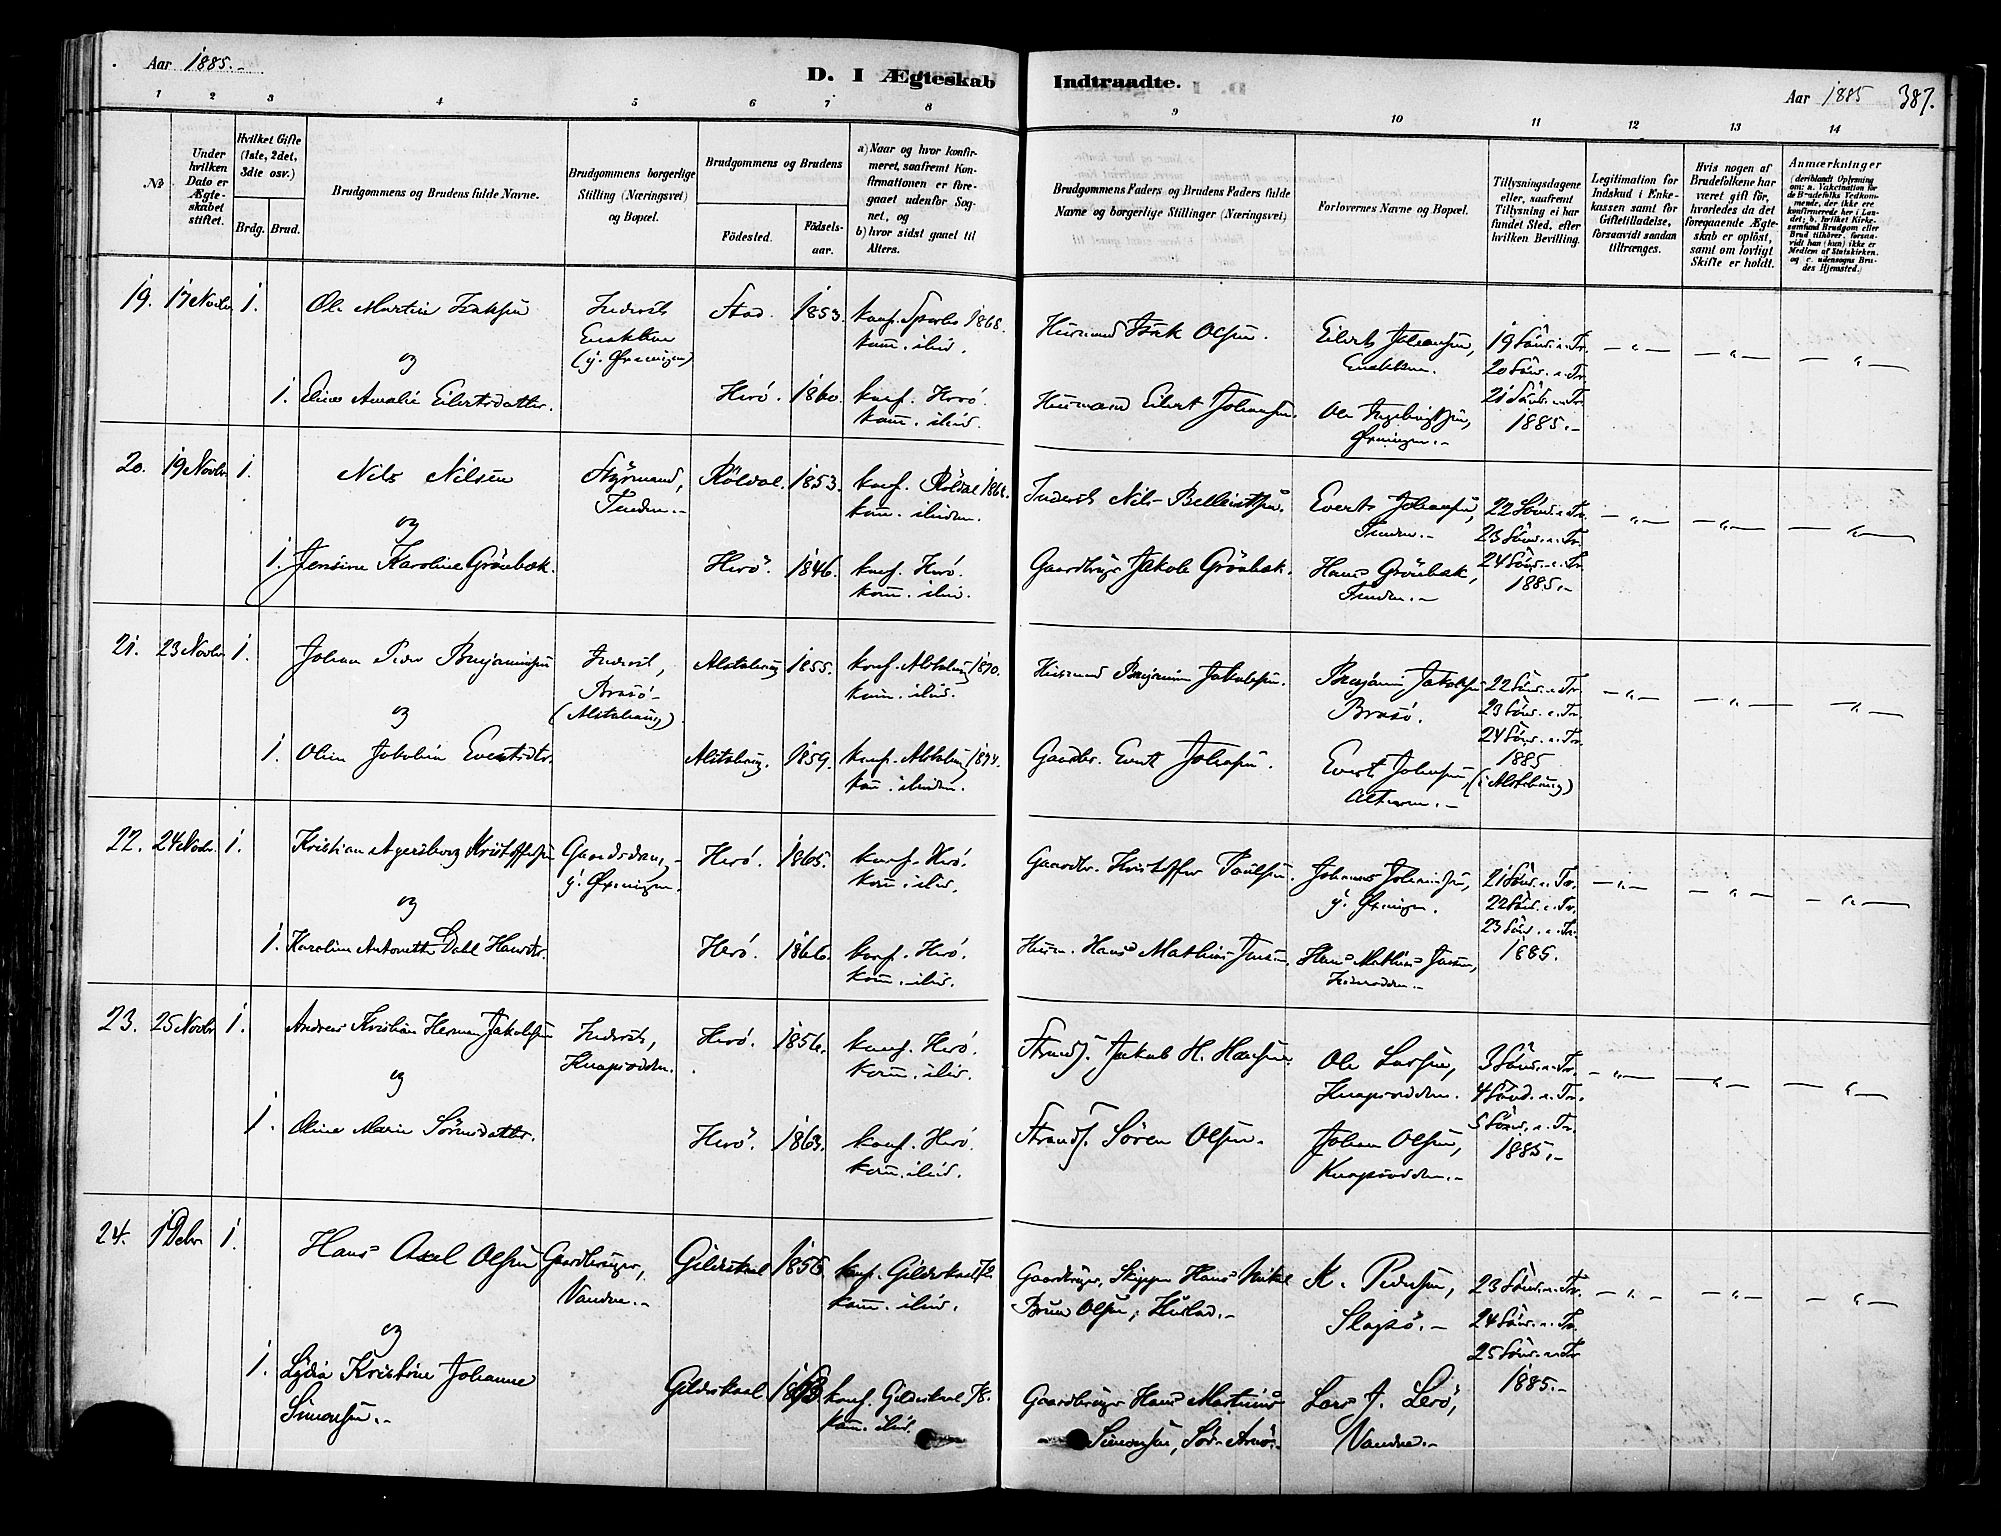 Aar 1885.-
D. I Ægteskab Indtraadte.
Aar 1885 387.
1 2 3 4 5 6 7 8 9 10 11 12 13 14
No
Under hvilken Dato er Ægteskabet stiftet.
Hvilket Gifte (1ste, 2det, 3die osv.)
Brdg. Brud.
Brudgommens og Brudens fulde Navne.
Brudgommens borgerlige Stilling (Næringsvei) og Bopæl.
Brudgommens og Brudens
Fødested. Fødselsaar.
a) Naar og hvor konfirmeret, saafremt Konfirmationen er foregaaet udenfor Sognet, og
b) hvor sidst gaaet til Alters.
Brudgommens Faders og Brudens Faders fulde Navne og borgerlige Stillinger (Næringsvei)
Forlovernes Navne og Bopæl.
Tillysningsdagene eller, saafremt Tillysning ei har fundet Sted, efter hvilken Bevilling.
Legitimation for Indskud i Enkekassen samt for Giftetilladelse, forsaavidt saadan tiltrænges.
Hvis nogen af Brudefolkene har været gift før, hvorledes da det foregaaende Ægteskab er opløst, samt om lovligt Skifte er holdt.
Anmærkninger
(deriblandt Oplysning om: a. Vakcination for de Brudefolks Vedkommende, der ikke ere konfirmerede her i Landet; b. hvilket Kirkesamfund Brudgom eller Brud tilhører, forsaavidt han (hun) ikke er Medlem af Statskirken, og c. udensogns Brudes Hjemsted.)
19. 17 Novbr 1. Ole Martin Isaksen
Stad. 1853. konf. Sparbo 1868. kom. ilid.
Husmand Isak Olsen. Eilert Johansen,
19 Sönd. e. Tr. 20 Sönd. e. Tr. 21 Sönd. e. Tr. 1885.-
og
1. Eline Amalie Eilertsdatter. Herö. 1860. konf. Herö. kom. ilid.
Husmand Eilert Johansen.
20. 19 Novbr 1. Nils Nilsen Styrmand, Röldal. 1853. konf. Röldal kom. ilid
Evert Johansen,
22 Sönd. e. Tr. 23 Sönd. e. Tr. 24 Sönd. e. Tr. 1885.-
og
1. Jensine Karoline Grönbæk. Herö. 1846. konf. Herö. kom. ilid.
Gaardbruger Jakob Grönbæk. Hans Grönbæk,
21. 23 Novbr 1. Johan Peder Benjaminsen Inderst, Brasö (Alstahaug) Alstahaug 1855. konf. Alstahaug 1870. kom. ilid.
Husmand Benjamin Jakobsen. Benjamin Jakobsen Brasö.
22 Sönd. e. Tr. 23 Sönd. e. Tr. 24 Sönd. e. Tr. 1885 (i Alstahaug)
og
1. Oline Jakobine Evertsdtr. Alstahaug. 1859. konf. Alstahaug 1874.
Gaardbr. Evert Johansen. Evert Johansen,
22. 24 Novbr. 1. Kristian Agersborg Kristoffersen y. Øxningen. Herö. 1865. konf. Herö. kom. ilid.
Gaardbr. Kristoffer Paulsen. Johannes Johansen, y. Øxningen.
21 Sönd. e. Tr. 22 Sönd. e. Tr. 23 Sönd. e. Tr. 1885.
og
1. Karoline Antonette Dahl Hansdtr. Herö. 1866. konf. Herö. kom. ilid.
Husm. Hans Mathias Jensen Hans Mathias Jensen,
23. 25 Novbr 1. Andreas Kristian Herman Jakobsen Inderst, Knapsodden. Herö. 1856. konf. Herö. kom. ilid.
Strands. Jakob H. Hansen. Ole Larsen, Knapsodden.
3 Sönd. e. Tr. 4 Sönd. e. Tr. 5 Sönd. e. Tr. 1885.-
og
1. Oline Marie Sörensdatter. Herö. 1863. konf. Herö. kom. ilid.
Strands. Sören Olsen. Johan Olsen, Knapsodden.-
24. 1 Debr. 1. Hans Axel Olsen Gaardbruger, Vandve.- Gildeskaal 1856 konf. Gildeskaal kom. ilid.
Gaardbruger, Skipper Hans Mikal Bruun Olsen, K. Pedersen, Slapsö.-
23 Sönd. e. Tr. 24 Sönd. e. Tr. 25 Sönd. e. Tr. 1885.-
og
1. Lydia Kristine Johanne Simonsen.- Gildeskaal konf. Gildeskaal 78. kom. ilid.
Gaardbruger Hans Martinus Simonsen, Sör-Arnö.- Lars J. Lerö, Vandve.-